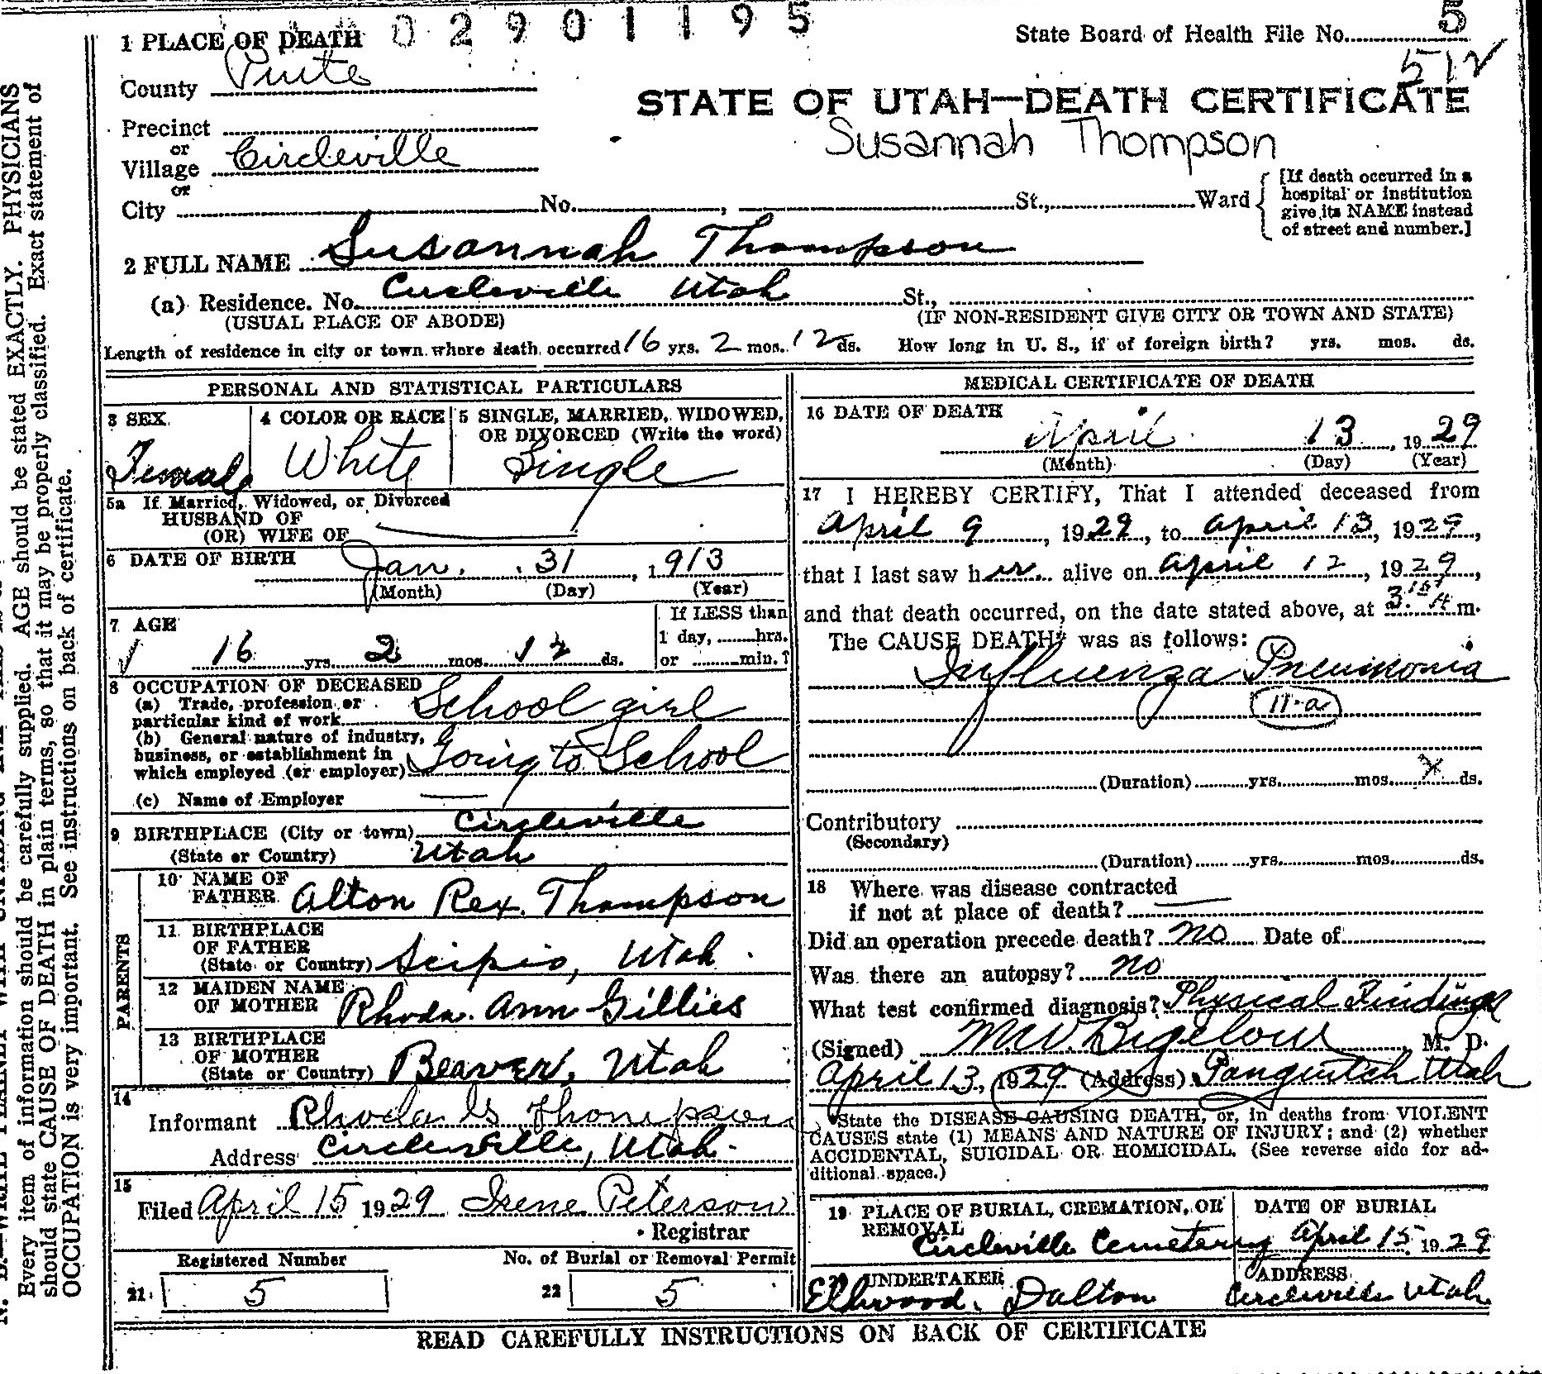 02901195
1 PLACE OF DEATH
State Board of Health File No. 5
512
County Piute
STATE OF UTAH—DEATH CERTIFICATE
Precinct
Susannah Thompson
or
Village Circleville
or
City No. , St., Ward
[If death occurred in a
hospital or institution
give its NAME instead
of street and number.]
2 FULL NAME Susannah Thompson
(a) Residence. No. Circleville Utah St.,
(USUAL PLACE OF ABODE) (IF NON-RESIDENT GIVE CITY OR TOWN AND STATE)
Length of residence in city or town where death occurred 16 yrs. 2 mos. 12 ds. How long in U. S., if of foreign birth? yrs. mos. ds.
PERSONAL AND STATISTICAL PARTICULARS
3 SEX
Female
4 COLOR OR RACE
White
5 SINGLE, MARRIED, WIDOWED,
OR DIVORCED (Write the word)
Single
5a If Married, Widowed, or Divorced
HUSBAND OF
(OR) WIFE OF
6 DATE OF BIRTH Jan. 31, 1913
(Month) (Day) (Year)
7 AGE
16 yrs 2 mos. 12 ds.
If LESS than
1 day, hrs.
or min.?
8 OCCUPATION OF DECEASED
(a) Trade, profession or
particular kind of work School girl
(b) General nature of industry,
business, or establishment in
which employed (or employer) Going to School
(c) Name of Employer
9 BIRTHPLACE (City or town) Circleville
(State or Country) Utah
PARENTS
10 NAME OF
FATHER Alton Rex. Thompson
11 BIRTHPLACE
OF FATHER
(State or Country) Scipio, Utah.
12 MAIDEN NAME
OF MOTHER Rhoda. Ann Gillies
13 BIRTHPLACE
OF MOTHER
(State or Country) Beaver, Utah
14
Informant Rhoda G Thompson
Address Circleville, Utah.
15
Filed April 15 1929 Irene Peterson
Registrar
Registered Number
21 5
No. of Burial or Removal Permit
22 5
MEDICAL CERTIFICATE OF DEATH
16 DATE OF DEATH
April 13, 1929
(Month) (Day) (Year)
17 I HEREBY CERTIFY, That I attended deceased from
April 9, 1929, to April 13, 1929,
that I last saw her alive on April 12, 1929,
and that death occurred, on the date stated above, at 3.15 A m.
The CAUSE DEATH* was as follows:
Influenza Pneumonia
11-a
(Duration) yrs. mos. ds.
Contributory
(Secondary)
(Duration) yrs. mos. ds.
18 Where was disease contracted
if not at place of death?
Did an operation precede death? no Date of
Was there an autopsy? no
What test confirmed diagnosis? Physical Findings
(Signed) M W. Bigelow M. D.
April 13, 1929 (Address) Panguitch Utah
State the DISEASE CAUSING DEATH, or, in deaths from VIOLENT
CAUSES state (1) MEANS AND NATURE OF INJURY; and (2) whether
ACCIDENTAL, SUICIDAL OR HOMICIDAL. (See reverse side for ad-
ditional space.)
19 PLACE OF BURIAL, CREMATION, OR
REMOVAL
Circleville Cemetery
DATE OF BURIAL
April 15 1929
UNDERTAKER
Ellwood. Dalton
ADDRESS
Circleville Utah
READ CAREFULLY INSTRUCTIONS ON BACK OF CERTIFICATE
Every item of information should be carefully supplied. AGE should be stated EXACTLY. PHYSICIANS
should state CAUSE OF DEATH in plain terms, so that it may be properly classified. Exact statement of
OCCUPATION is very important. See instructions on back of certificate.